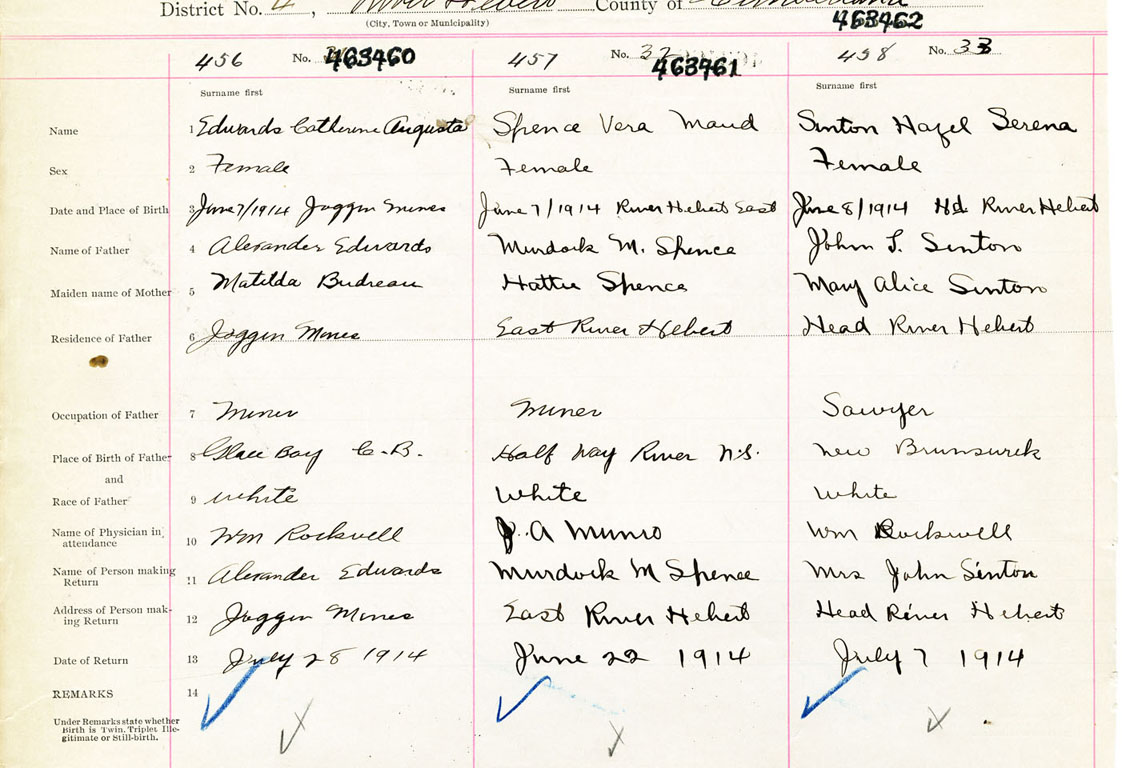 District No. 4, River Hebert County of Cumberland
(City, Town or Municipality)
463462
456 No. 463460 457 No. 32 458 No. 33
463461
Surname first Surname first Surname first
Name 1 Edwards Catherine Augusta Spence Vera Maud Sinton Hazel Serena
Sex 2 Female Female Female
Date and Place of Birth 3 June 7/1914 Joggin Mines June 7/1914 River Hebert East June 8/1914 Hd. River Hebert
Name of Father 4 Alexander Edwards Murdock M. Spence John S. Sinton
Maiden name of Mother 5 Matilda Budreau Hattie Spence Mary Alice Sinton
Residence of Father 6 Joggin Mines East River Hebert Head River Hebert
Occupation of Father 7 Miner Miner Sawyer
Place of Birth of Father 8 Glace Bay C.B. Half Way River N.S. New Brunswick
and
Race of Father 9 White White White
Name of Physician in attendance 10 Wm Rockwell J. A Munro Wm Rockwell
Name of Person making Return 11 Alexander Edwards Murdock M Spence Mrs John Sinton
Address of Person mak-ing Return 12 Joggin Mines East River Hebert Head River Hebert
Date of Return 13 July 28 1914 June 22 1914 July 7 1914
REMARKS 14
Under Remarks state whether
Birth is Twin, Triplet Ille-
gitimate or Still-birth.